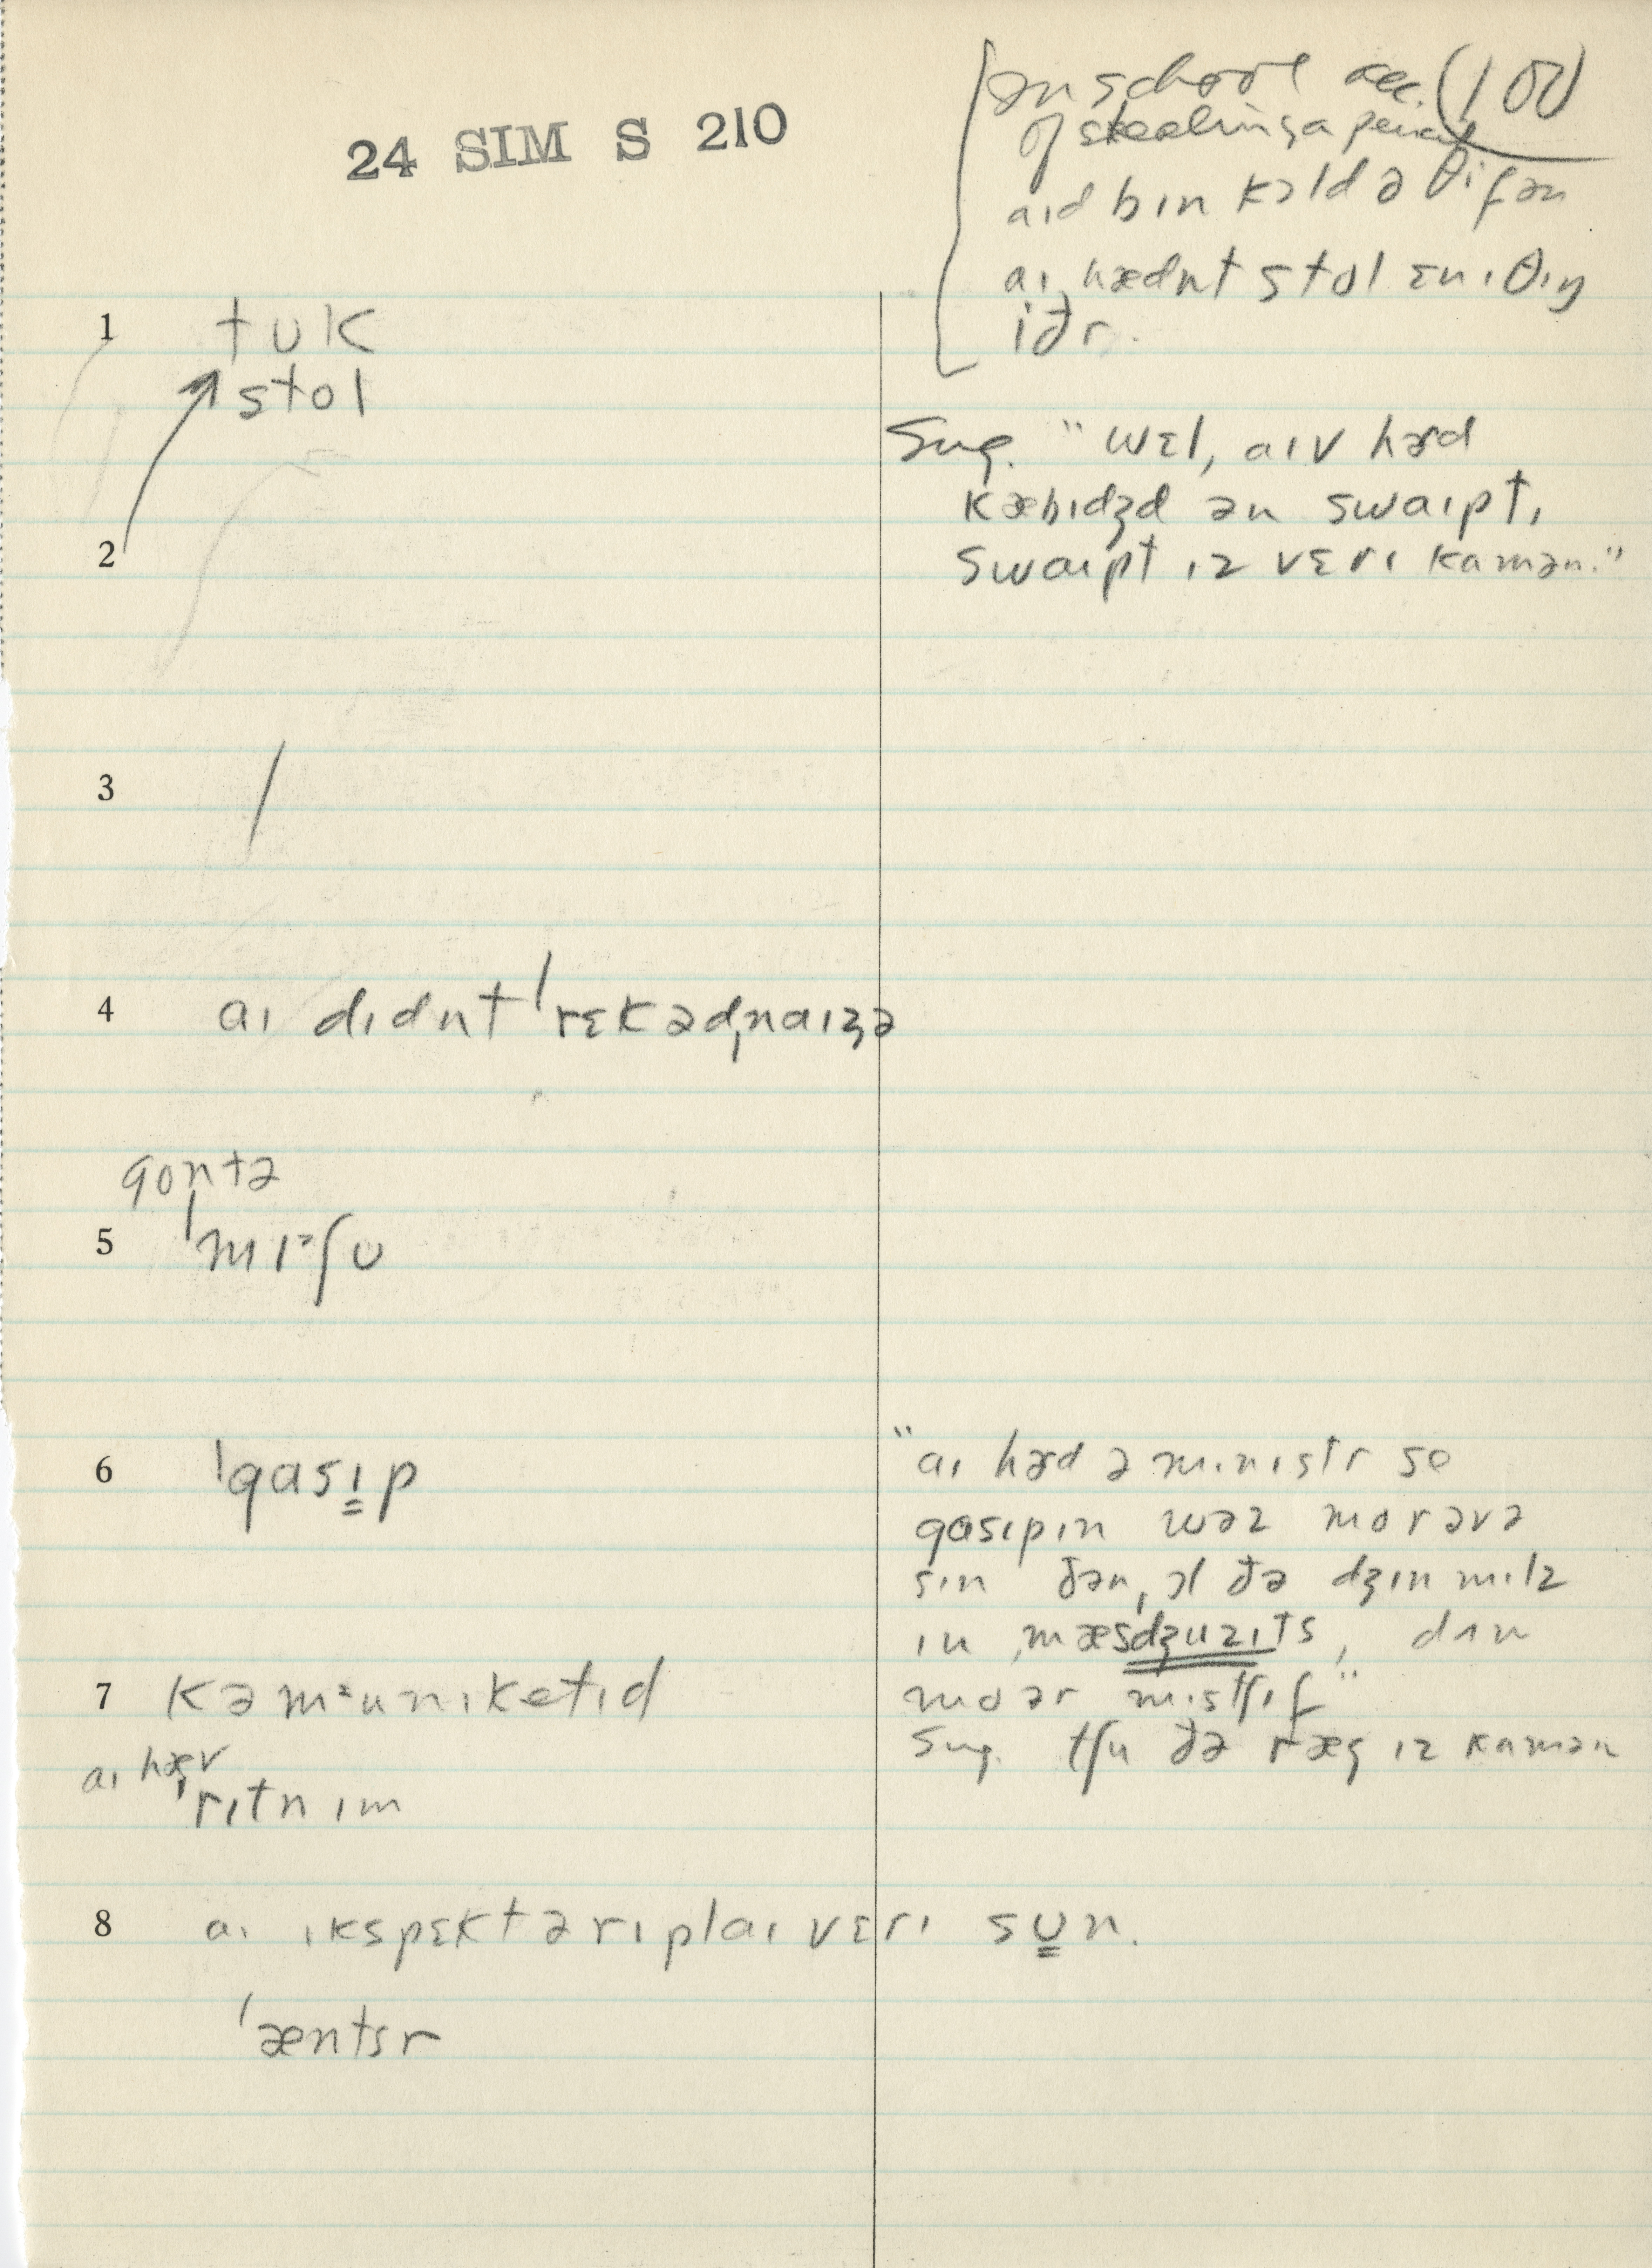 24 SIM S 210
In school acc. (100)
of stealing a pencil
aɪd bɪn kɔld ə θif ən
aɪ hædnt stol ɛnɪθɪŋ
iðr.
1 tuk
stol
Sug. "wɛl, aɪv hɜd
kæbɪdʒd ən swaɪpt,
2 swaɪpt ɪz vɛrɪ kamən."
3 /
4 aɪ dɪdnt ˈrɛkədnaɪzə
gontə
5 ˈmɪᵊʃu
6 ˈgasɪp
"aɪ hɜd ə mɪnɪstr se
gasɪpɪn wəz mor əvə
sɪn ðən, ɔl ðə dʒɪn mɪlz
ɪn mæsdʒuzɪts, dʌn
7 kəmᶦunɪketɪd
moər mɪstʃɪf"
aɪ hæv
Sug. tʃu ðə ræg ɪz kamən
ˈrɪtn ɪm
8 aɪ ɪkspɛkt ə rɪplaɪ vɛrɪ sun.
ˈæntsr